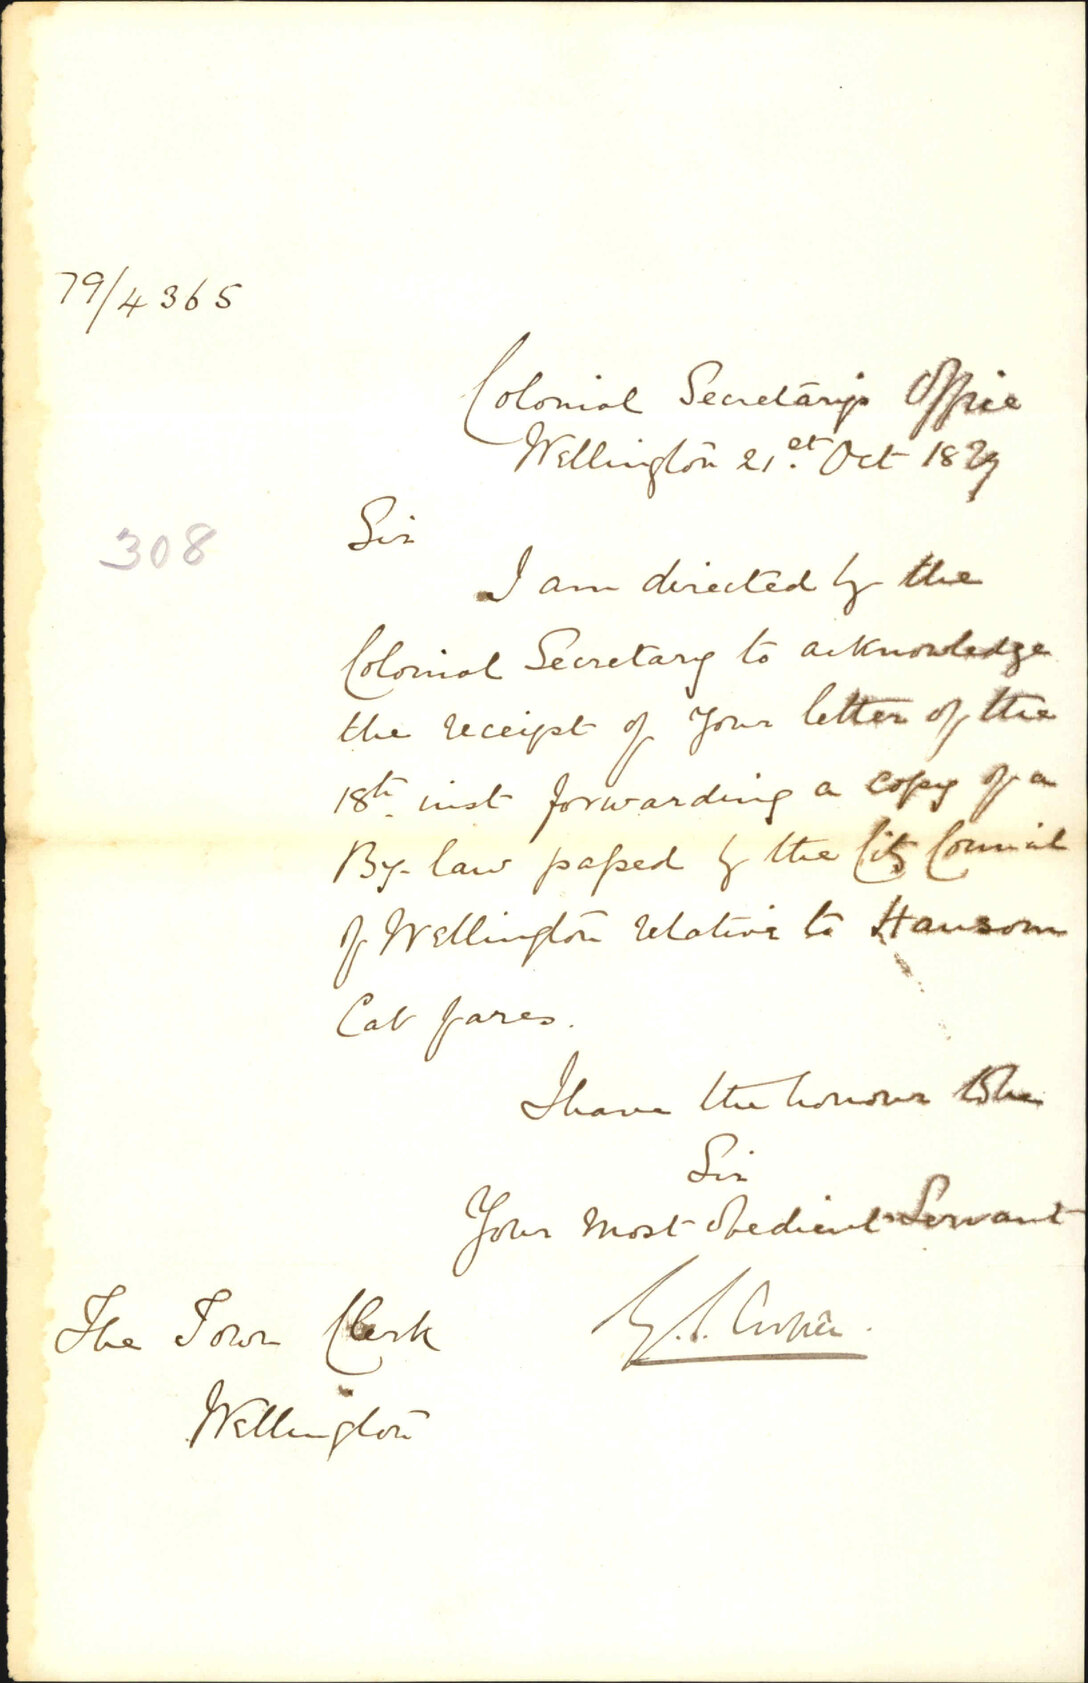 79/4365
Colonial Secretary's Office
Wellington 21st Oct 1879
308
Sir
I am directed by the
Colonial Secretary to acknowledge
the receipt of your letter of the
18th inst forwarding a copy of a
By-law passed by the City Council
of Wellington relative to Hansom
Cab fares.
I have the honour to be
Sir
Your most obedient Servant
G.S. Cooper.
The Town Clerk
Wellington